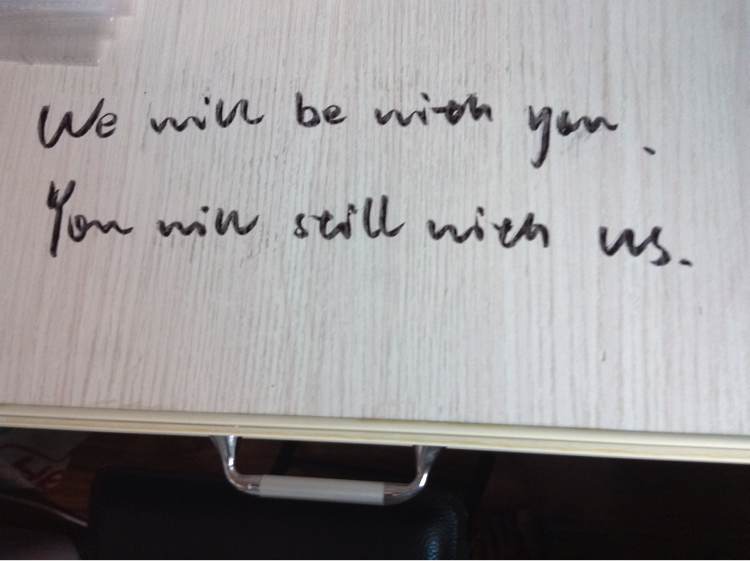 We will be with you.
You will still with us.